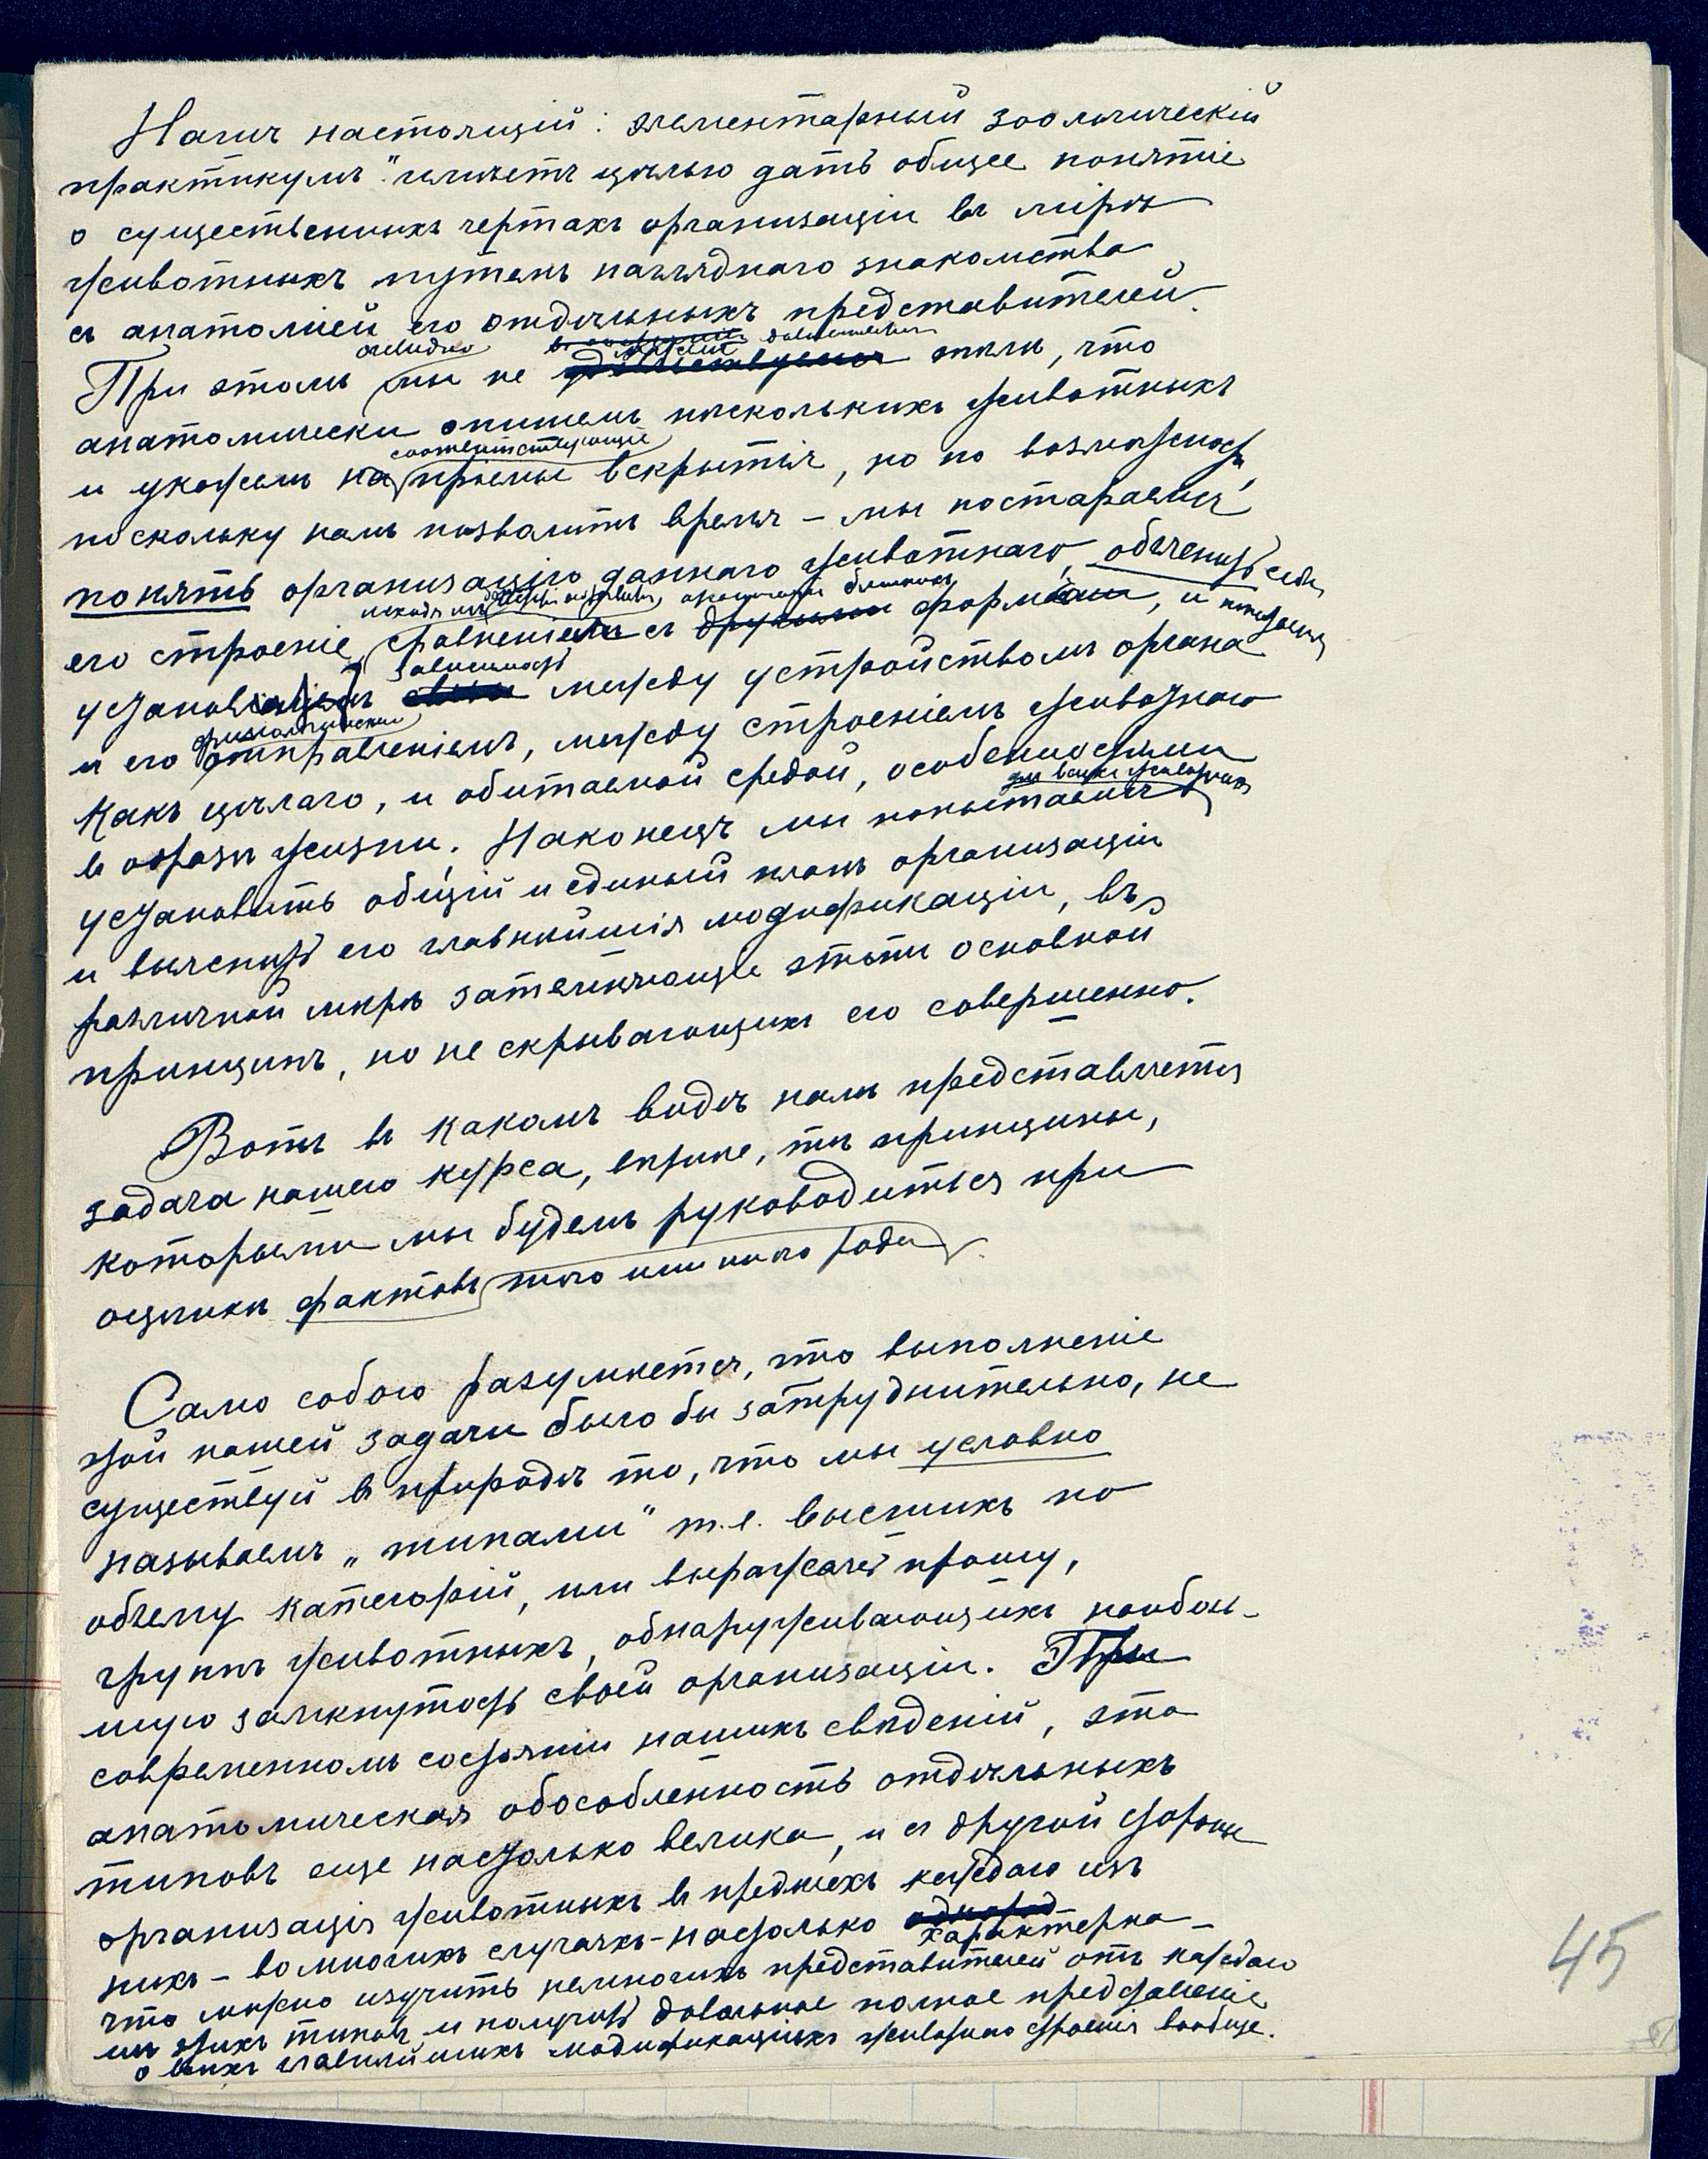 Нашъ настоящій „элементарный зоологическій
практикумъ" имѣетъ цѣлью дать общее понятіе
о существенныхъ чертахъ организаціи въ мірѣ
животныхъ путемъ нагляднаго знакомства
съ анатоміей его отдѣльныхъ представителей.
очевидно можемъ довольствоваться
При этомъ мы не тѣмъ, что
анатомически опишемъ нѣсколькихъ животныхъ
соотвѣтствующіе
и укажемъ на пріемы вскрытія, но по возможности,
поскольку намъ позволитъ время – мы постараемся
понять организацію даннаго животнаго, объяснить себѣ
исходя изъ организаціи ближнихъ
его строеніе, сравненіемъ съ другими формами, и
зависимость
установить связь между устройствомъ органа
физіологическимъ
и его отправленіемъ, между строеніемъ животнаго
какъ цѣлаго, и обитаемой средой, особенностями
для всѣхъ животныхъ
въ образѣ жизни. Наконецъ мы попытаемся
установить общій и единый планъ организаціи
и выяснить его главнѣйшія модификаціи, въ
различной мѣрѣ затемняющіе этотъ основной
принципъ, но не скрывающихъ его совершенно.
Вотъ въ какомъ видѣ намъ представляется
задача нашего курса, вѣрнѣе, тѣ принципы,
которыми мы будемъ руководиться при
оцѣнкѣ фактовъ того или иного рода.
Само собою разумѣется, что выполненіе
этой нашей задачи было бы затруднительно, не
существуй въ природѣ то, что мы условно
называемъ „типами" т.е. высшихъ по
объему категорій, или выражаясь проще,
группъ животныхъ, обнаруживающихъ наиболь-
шую замкнутость своей организаціи. При
современномъ состояніи нашихъ свѣденій, эта
анатомическая обособленность отдѣльныхъ
типовъ еще настолько велика, и съ другой стороны
организація животныхъ въ предѣлахъ каждаго изъ
нихъ – во многихъ случаяхъ – настолько однород
характерна –
что можно изучить немногихъ представителей отъ каждаго
изъ этихъ типовъ и получить довольное полное представленіе
о всѣхъ главнѣйшихъ модификаціяхъ животнаго строенія вообще.
45